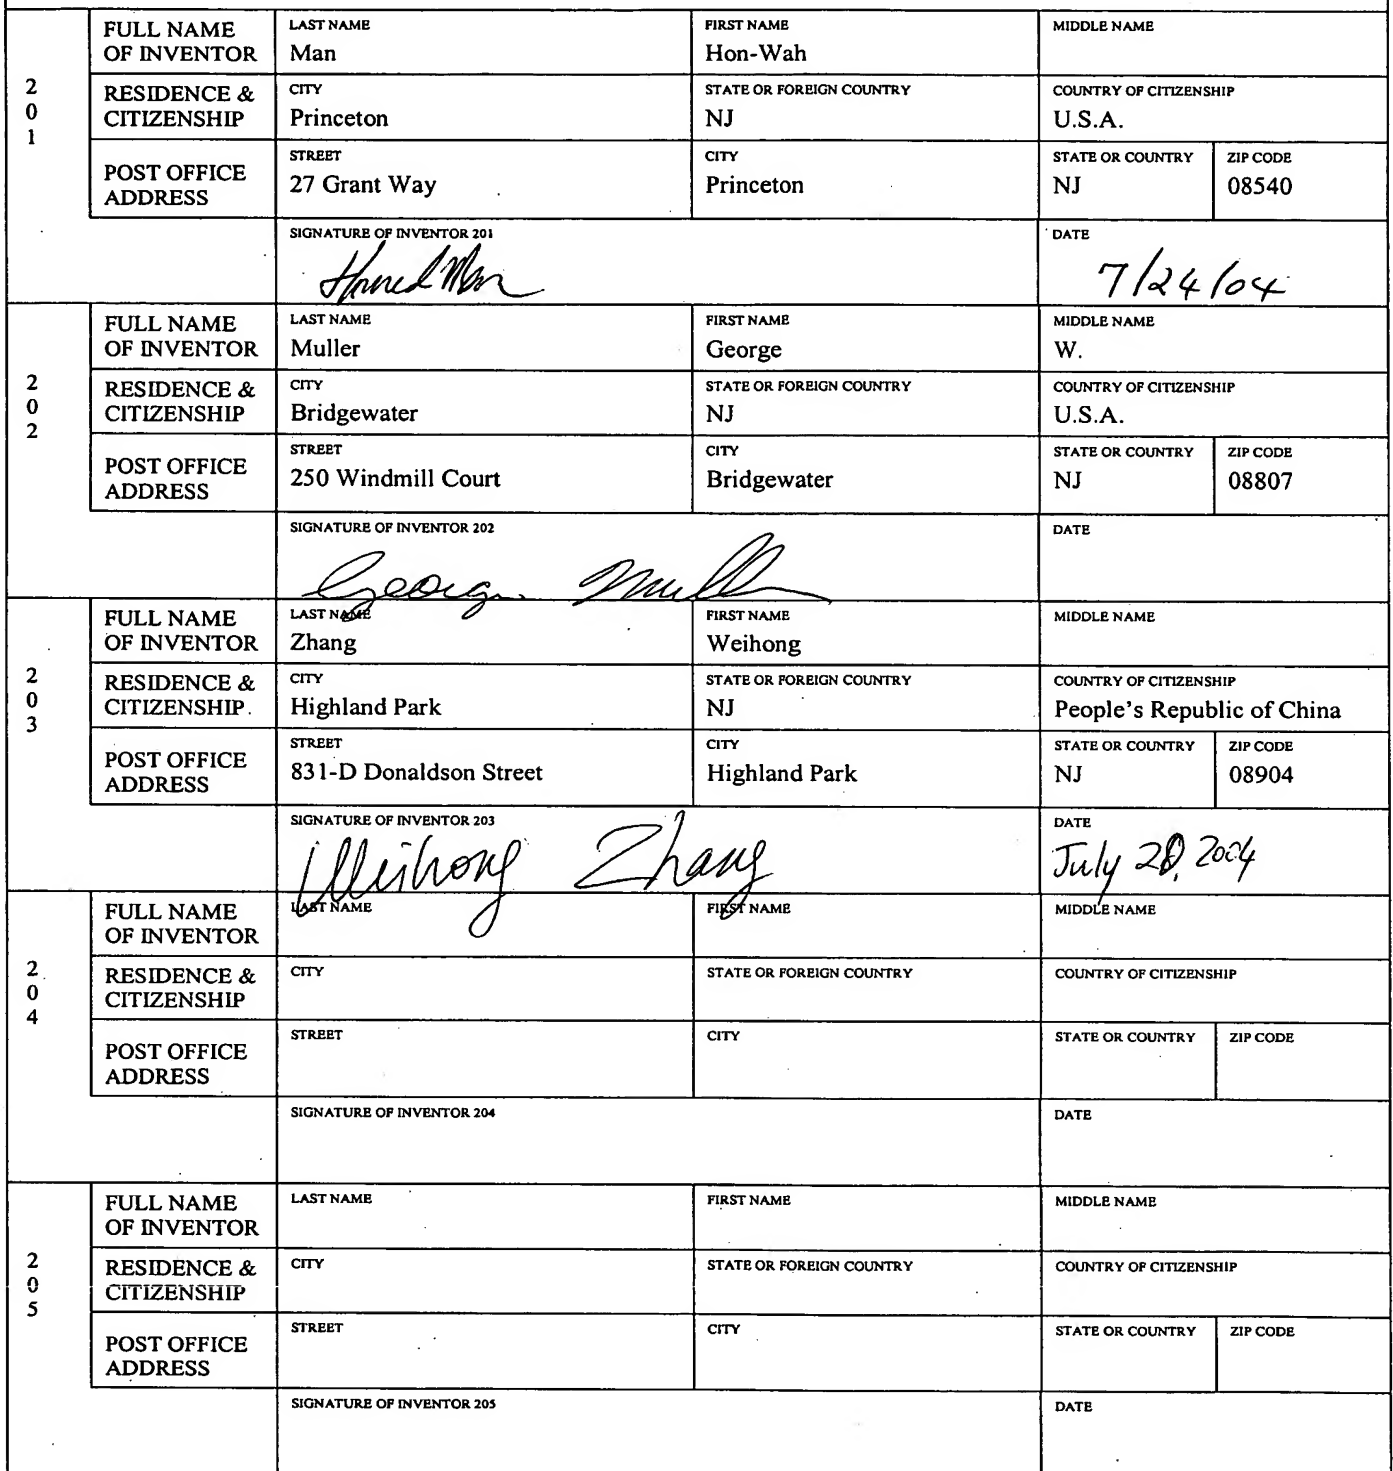 201
FULL NAME OF INVENTOR LAST NAME Man FIRST NAME Hon-Wah MIDDLE NAME
RESIDENCE & CITIZENSHIP CITY Princeton STATE OR FOREIGN COUNTRY NJ COUNTRY OF CITIZENSHIP U.S.A.
POST OFFICE ADDRESS STREET 27 Grant Way CITY Princeton STATE OR COUNTRY NJ ZIP CODE 08540
SIGNATURE OF INVENTOR 201 Man DATE 7/24/04
202
FULL NAME OF INVENTOR LAST NAME Muller FIRST NAME George MIDDLE NAME W.
RESIDENCE & CITIZENSHIP CITY Bridgewater STATE OR FOREIGN COUNTRY NJ COUNTRY OF CITIZENSHIP U.S.A.
POST OFFICE ADDRESS STREET 250 Windmill Court CITY Bridgewater STATE OR COUNTRY NJ ZIP CODE 08807
SIGNATURE OF INVENTOR 202 George Muller DATE
203
FULL NAME OF INVENTOR LAST NAME Zhang FIRST NAME Weihong MIDDLE NAME
RESIDENCE & CITIZENSHIP CITY Highland Park STATE OR FOREIGN COUNTRY NJ COUNTRY OF CITIZENSHIP People's Republic of China
POST OFFICE ADDRESS STREET 831-D Donaldson Street CITY Highland Park STATE OR COUNTRY NJ ZIP CODE 08904
SIGNATURE OF INVENTOR 203 Weihong Zhang DATE July 2004
204
FULL NAME OF INVENTOR LAST NAME FIRST NAME MIDDLE NAME
RESIDENCE & CITIZENSHIP CITY STATE OR FOREIGN COUNTRY COUNTRY OF CITIZENSHIP
POST OFFICE ADDRESS STREET CITY STATE OR COUNTRY ZIP CODE
SIGNATURE OF INVENTOR 204 DATE
205
FULL NAME OF INVENTOR LAST NAME FIRST NAME MIDDLE NAME
RESIDENCE & CITIZENSHIP CITY STATE OR FOREIGN COUNTRY COUNTRY OF CITIZENSHIP
POST OFFICE ADDRESS STREET CITY STATE OR COUNTRY ZIP CODE
SIGNATURE OF INVENTOR 205 DATE